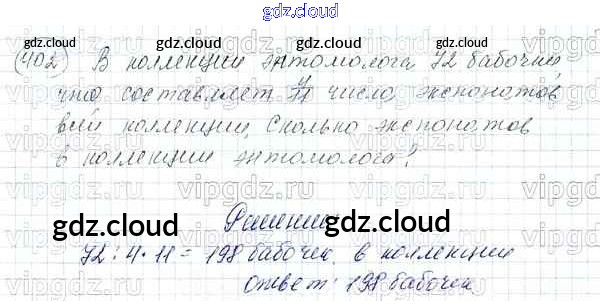 gdz.cloud
gdz.cloud gdz.cloud gdz.cloud
402) В коллекции энтомолога 72 бабочки,
что составляет 4/11 числа экспонатов
всей коллекции. Сколько экспонатов
в коллекции энтомолога?
vipgdz.ru vipgdz.ru vipgdz.ru vipgdz.ru
Решение
gdz.cloud gdz.cloud gdz.cloud
72 : 4 · 11 = 198 бабочек в коллекции
ответ: 198 бабочек